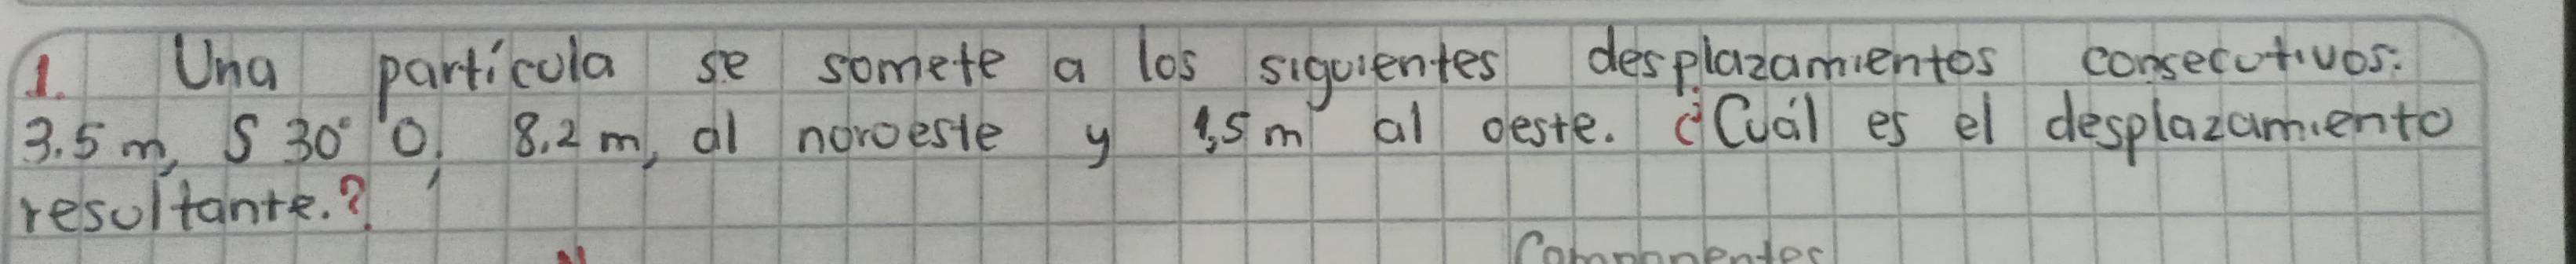 1. Una partícula se somete a los siguientes desplazamientos consecutivos:
3.5 m, S 30° O; 8.2 m, al noroeste y 1,5 m al oeste. ¿Cuál es el desplazamiento
resultante.?
N
Componentes